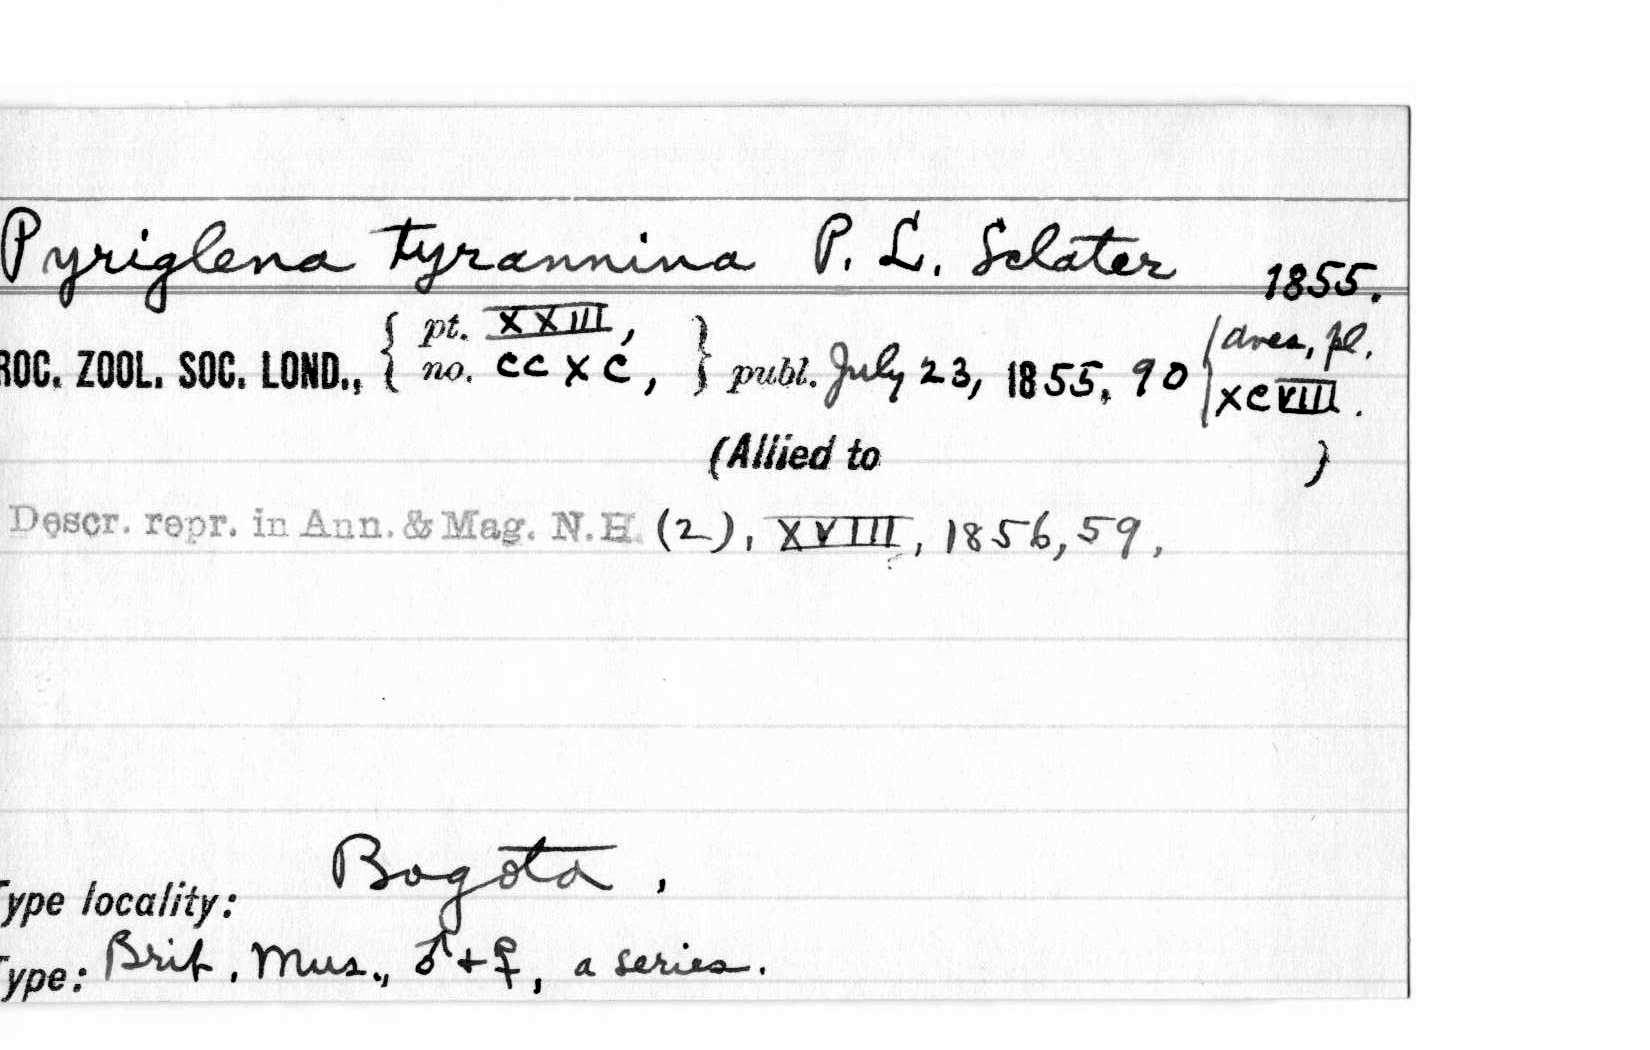 Pyriglena tyrannina P. L. Sclater 1855.
ROC. ZOOL. SOC. LOND., { pt. XXIII, no. CCXC, } publ. July 23, 1855, 90 (Aves, pl. XCVIII.
(Allied to )
Descr. repr. in Ann. & Mag. N.H. (2), XVIII, 1856, 59,
Bogota,
ype locality:
ype: Brit. Mus., ♂ + ♀, a series.